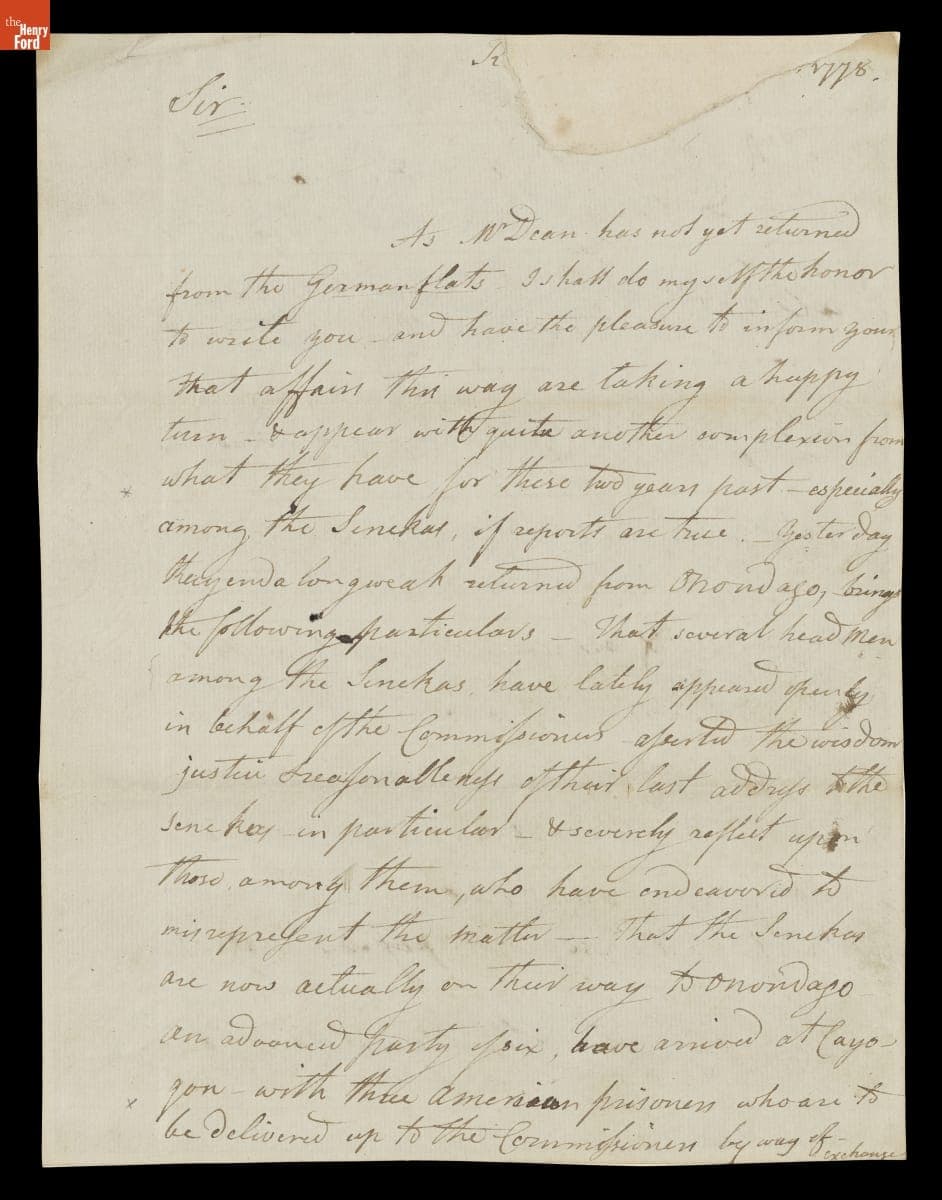 the
Henry
Ford
1778.
Sir
As Mr Dean has not yet returned
from the German flats I shall do myself the honor
to write you – and have the pleasure to inform your
that affairs this way are taking a happy
turn – & appear with quite another complexion from
what they have for these two years past – especially
among the Senekas, if reports are true. – Yesterday
returned from Onondago, brings
the following particulars – That several head Men
among the Senekas, have lately appeared openly
in behalf of the Commissioners – aserted the wisdom
justice & reasonableness of their last address to the
Senekas – in particular – & severely reflect upon
those among them, who have endeavored to
misrepresent the matter – That the Senekas
are now actually on their way to Onondago –
an advanced party of six, have arrived at Cayo-
gon – with three American prisoners who are to
be delivered up to the Commissioners by way of –
exchange